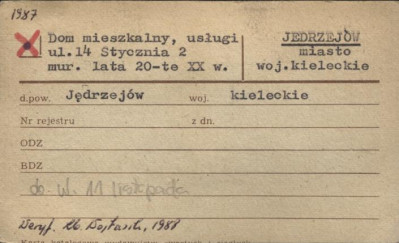 1987
Dom mieszkalny, usługi
ul.14 Stycznia 2
mur. lata 20-te XX w.
JĘDRZEJÓW
miasto
woj.kieleckie
d.pow. Jędrzejów woj. kieleckie
Nr rejestru z dn.
ODZ
BDZ
do ul. 11 listopada
Weryf. 1988